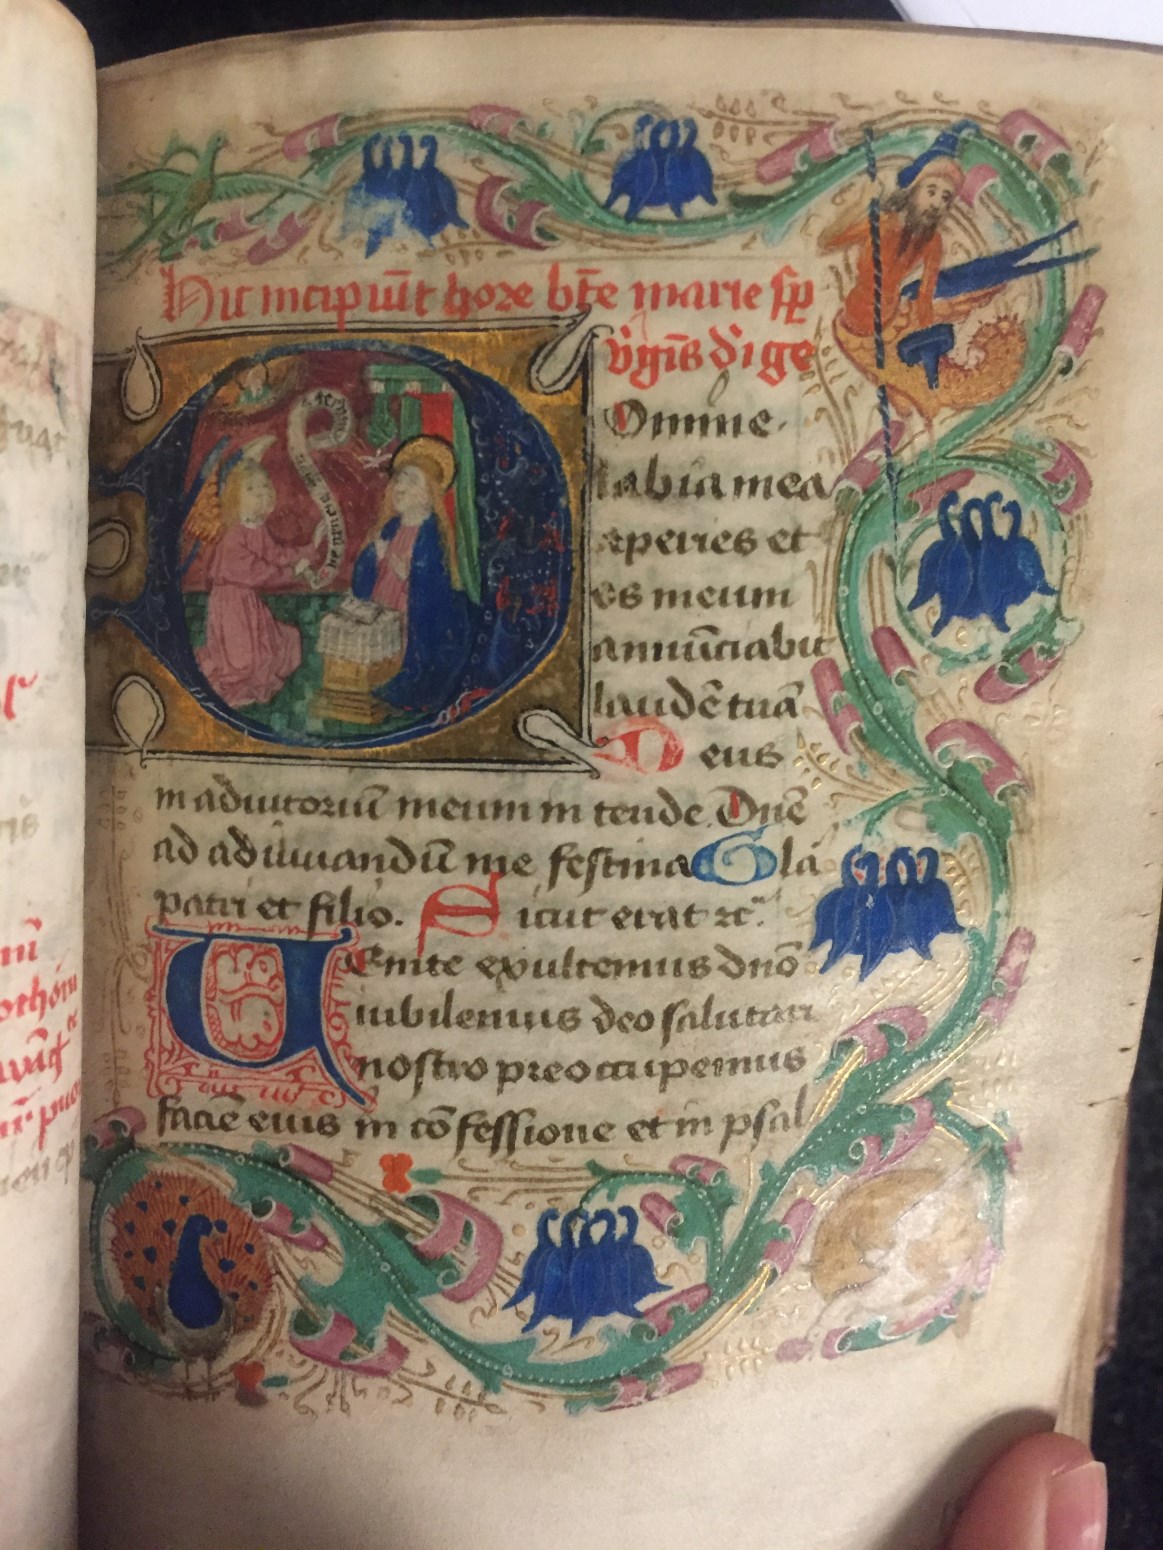 Hic incipiūt hore btē marie sp
v̄gīīs dige
Domine
labia mea
aperies et
os meum
annūciabit
laudē tuā
Deus
in adiutoriū meum in tende Dnē
ad adiuuandū me festina Gla
patri et filio. Sicut erat ⁊c̄.
Uenite exultemus dnō
iubilemus deo salutari
nostro preoccupemus
faciē eius in cōfessione et in psal